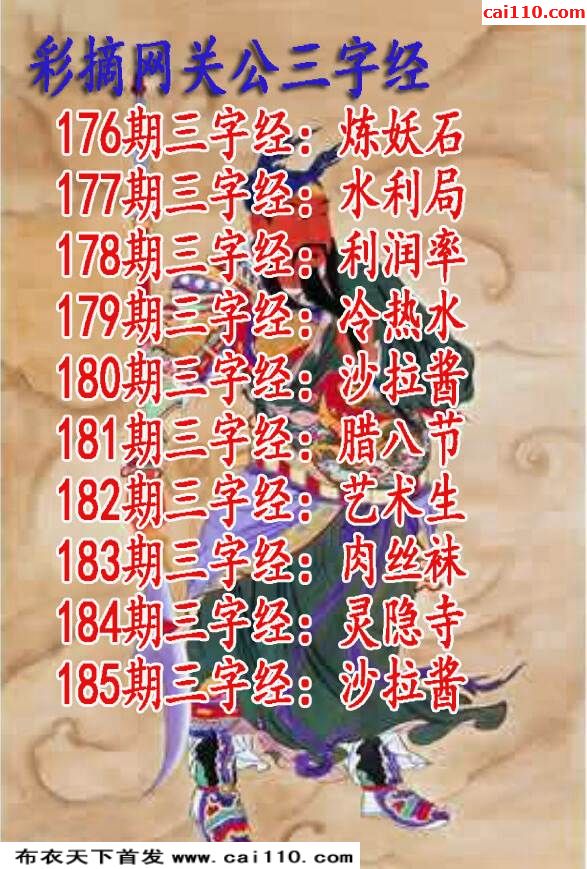 cai110.com
彩摘网关公三字经
176期三字经：炼妖石
177期三字经：水利局
178期三字经：利润率
179期三字经：冷热水
180期三字经：沙拉酱
181期三字经：腊八节
182期三字经：艺术生
183期三字经：肉丝袜
184期三字经：灵隐寺
185期三字经：沙拉酱
布衣天下首发 www.cai110.com